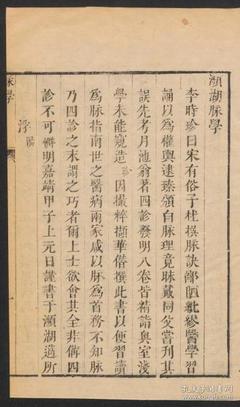 瀕湖脉學
李時珍曰宋有俗子杜撰脉訣鄙陋紕繆醫學習
誦以爲權輿逮臻頒白脉理竟昧戴同父常刊其
誤先考月池翁著四診發明八卷皆精詣奥室淺
學未能窺造珍因撮粹擷華僭撰此書以便習讀
爲脉指南世之醫病兩家咸以脉爲首務不知脉
乃四診之末謂之巧者爾上士欲會其全非備四
診不可 明嘉靖甲子上元日謹書于瀕湖邁所
浮 陽
脉學